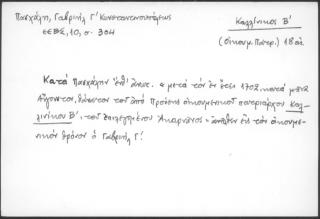 Πασχάλη, Γαβριήλ Γ' Κωνσταντινουπόλεως
ΕΕΒΣ, 10, σ. 304
Καλλίνικος Β'
(Οἰκουμ. Πατρ.) 18 αἰ.
Κατὰ Πασχάλην ἔνθ' ἀνωτ. « μετὰ τὸν ἐν ἔτει 1702 κατὰ μῆνα
Αὔγουστον, θάνατον τοῦ ἀπὸ Προύσης οἰκουμενικοῦ πατριάρχου Καλ-
λινίκου Β', τοῦ ἐπιλεγομένου Ἀκαρνᾶνος ἀνῆλθεν εἰς τὸν οἰκουμε-
νικὸν θρόνον ὁ Γαβριὴλ Γ'.